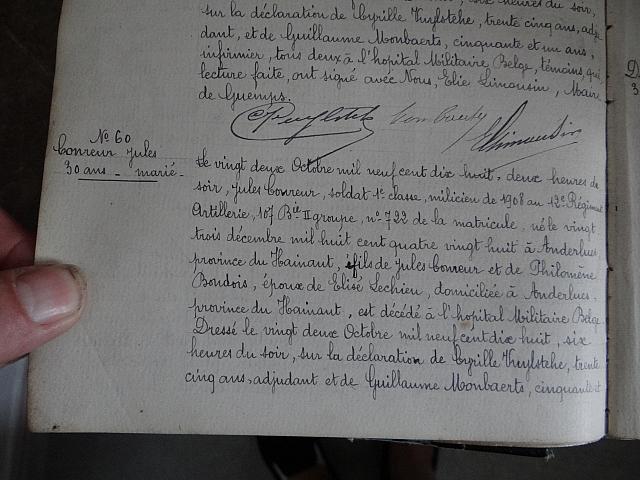 six heures du soir,
sur la déclaration de Cyrille Vuylsteke, trente cinq ans, adju
dant, et de Guillaume Monbaerts, cinquante et un ans,
infirmier, tous deux à l'hopital Militaire Belge, témoins, qui,
lecture faite, ont signé avec Nous, Elie Limousin, Maire
de Guemps.
CVuylsteke Monbaerts ELimousin
N° 60
Conreur Jules
30 ans - marié -
Le vingt deux Octobre mil neuf cent dix huit, deux heures du
soir, Jules Conreur, soldat 1e classe, milicien de 1908 au 13e Régiment
Artillerie, 107 Bie II groupe, n° 722 de la matricule, né le vingt
trois décembre mil huit cent quatre vingt huit à Anderlues
province du Hainaut, fils de Jules Conreur et de Philomène
Bondois, époux de Elise Lechien, domiciliée à Anderlues
province du Hainaut, est décédé à l'hopital Militaire Belge.
Dressé le vingt deux Octobre mil neuf cent dix huit, six
heures du soir, sur la déclaration de Cyrille Vuylsteke, trente
cinq ans, adjudant et de Guillaume Monbaerts, cinquante et
D
3